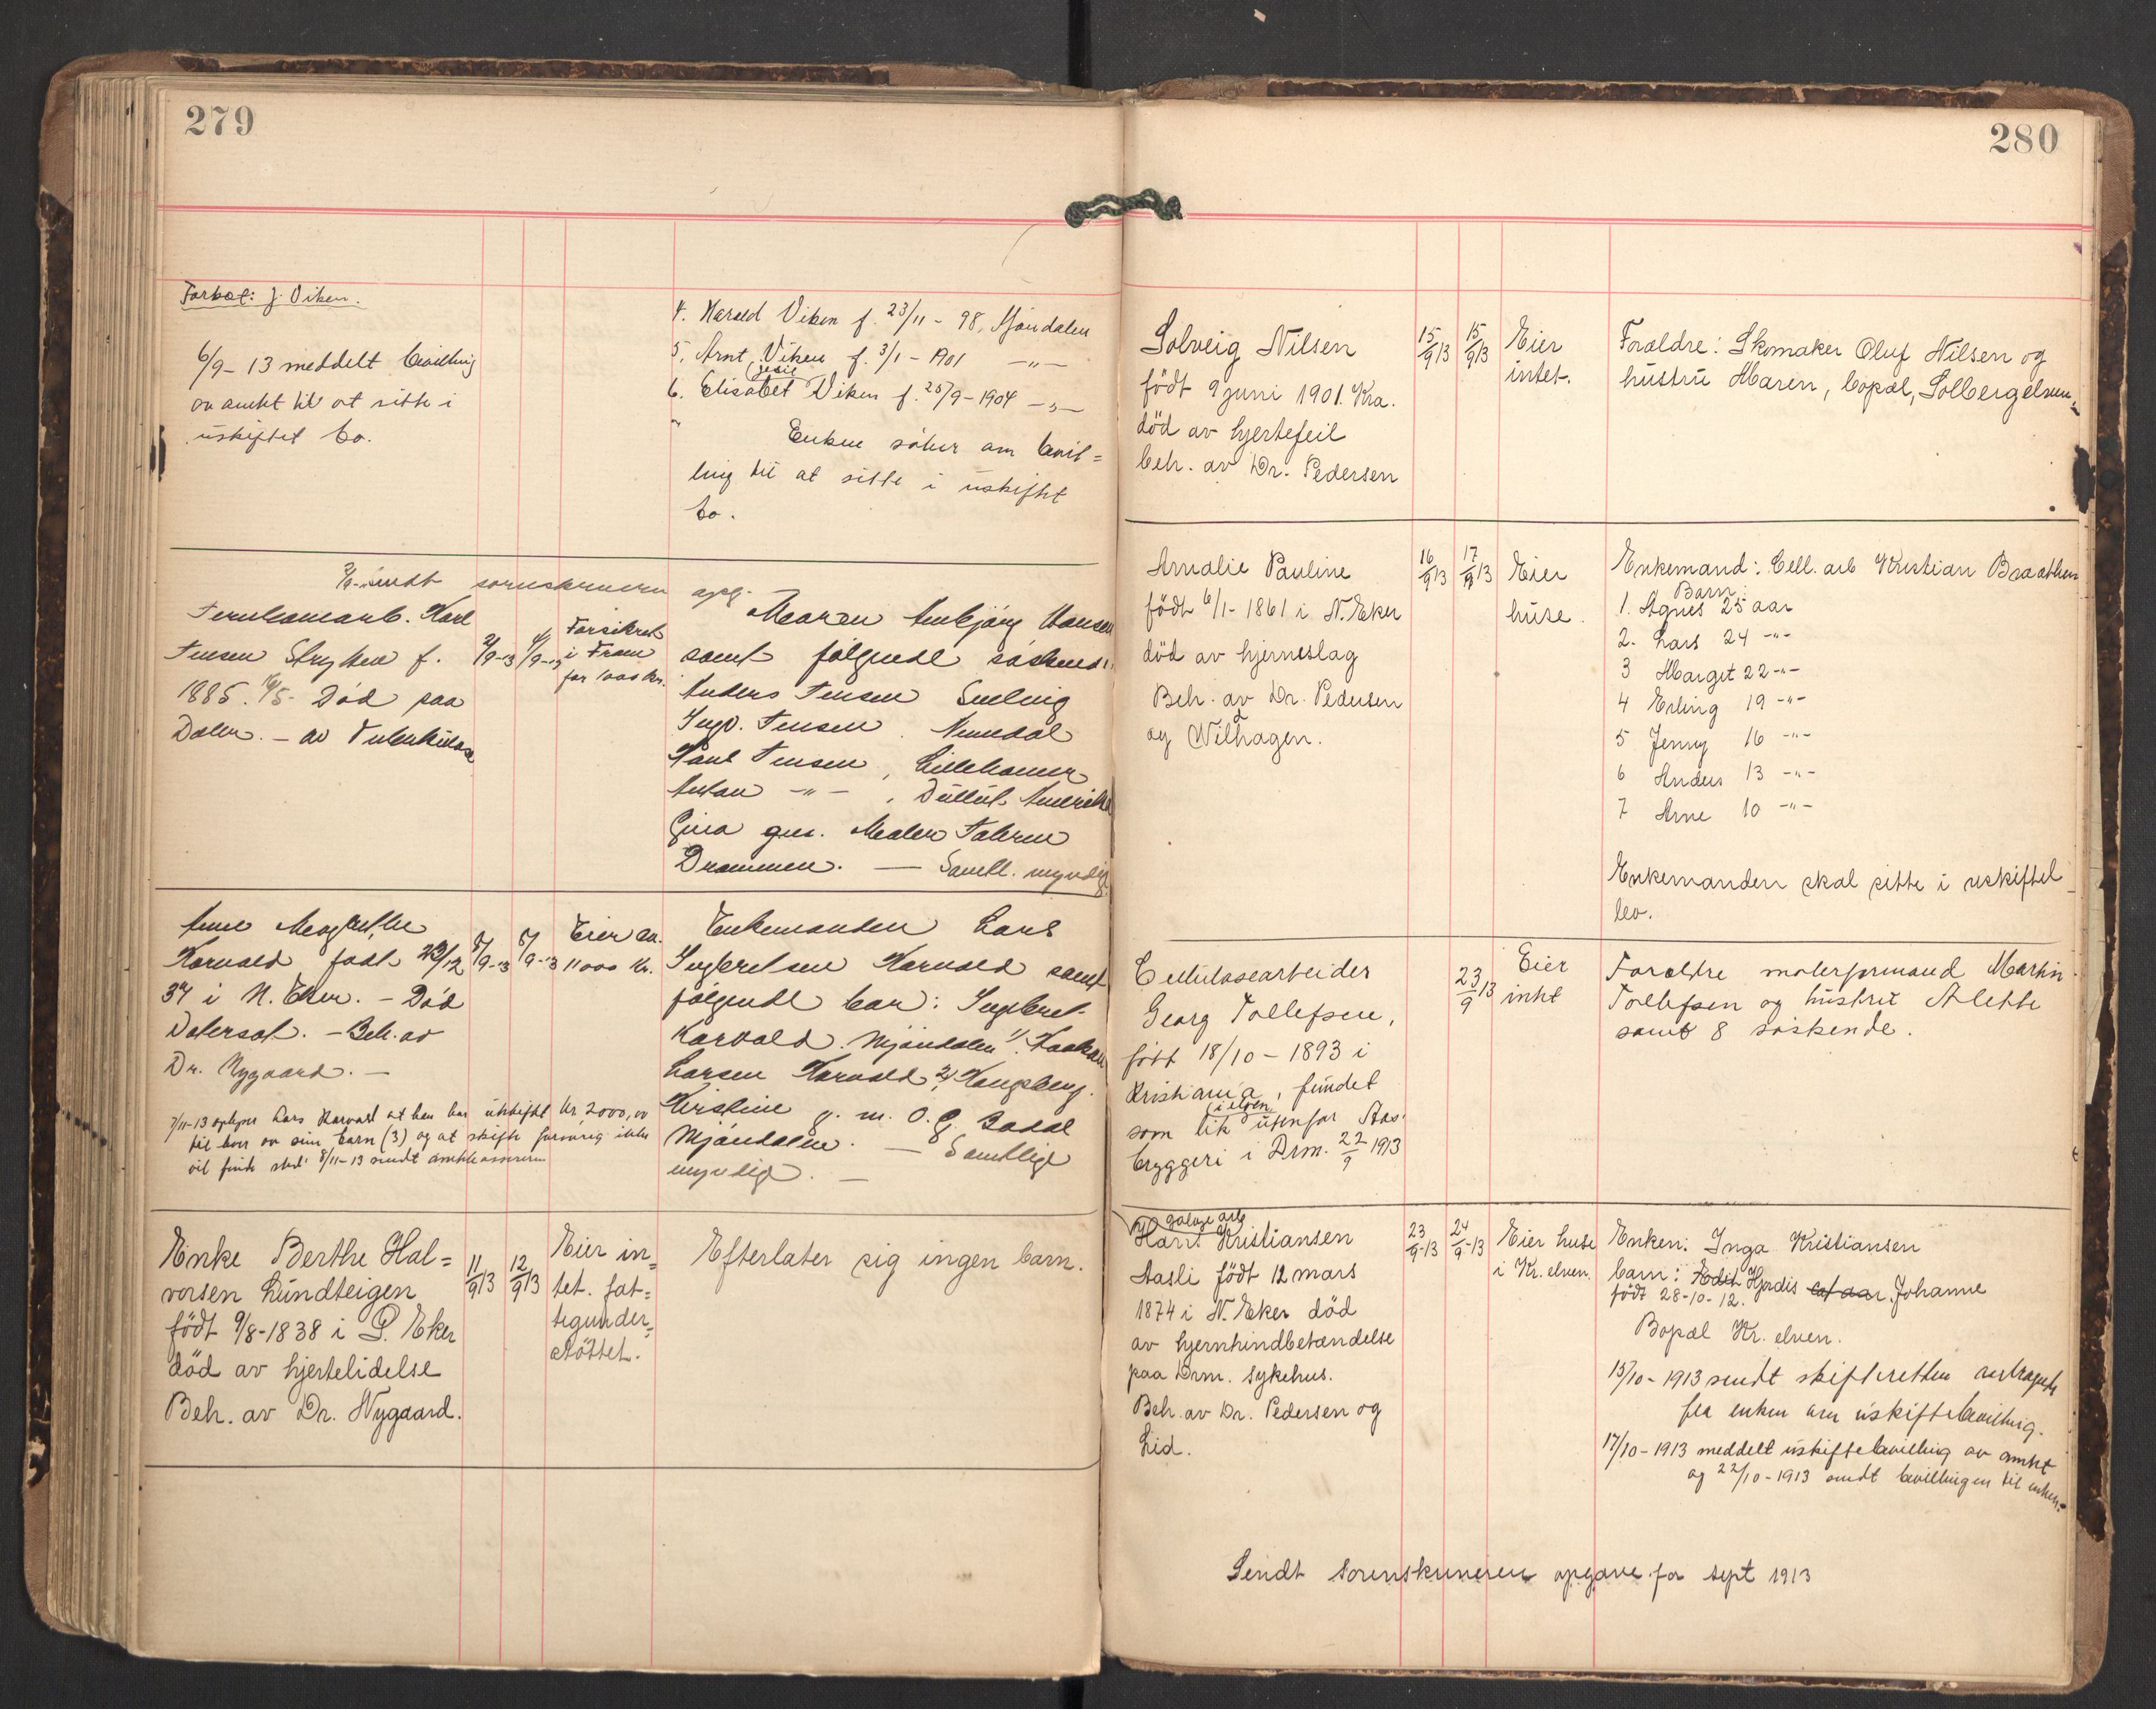 279
Forbet: J. Viken.
6/9-13 meddelt bevilling
av amtet til at sitte i
uskiftet bo.
4. Harald Viken f. 23/11-98, Mjöndalen
5. Arnt Viken f. 3/1-1901 -"-
6. Elisabet Viken f. 25/9-1904 -"-
Enken söker om bevil=
ling til at sitte i uskiftet
bo.
sendt sorenskriveren opg.
Karl
Jensen Stryken f.
1885. 16/5- Död paa
Dalen. - av Tuberkulose
9-13
9-13
Forsikret
i Fram
for 1000 kr.
Maren Hansen
samt følgende söskend:
Anders Jensen Selvig
Ingv. Jensen Numedal
Paul Jensen, Lillehamer
Anton -"-, Amerika
Gina
Drammen. — Samtl. myndig
Anne Magrethe
Horvald född 23/12
37 i N. Eker. - Död
- Beh. av
Dr. Nygaard. -
5/9-13
5/9-13
Eier ca.
11000 kr.
7/11-13 oplyser Lars Horvald at han har utskiftet kr 2000,00
til hver av sine barn (3) og at skifte forövrig ikke
vil finde sted. 8/11-13 sendt
Enkemanden Lars
Ingbretsen Horvald samt
følgende barn: Ingebret
Horvald. Mjöndalen 1/. Haakon
Larsen Horvald 2/ Kongsberg.
Kirstine g. m. O. G.
Mjöndalen. — Samtlige
myndige. —
Enke Berthe Hal=
vorsen Lundteigen
født 9/8-1838 i Ö. Eker
död av hjertelidelse
Beh. av Dr. Nygaard.
11/9 13
12/9 13
Eier in=
tet. fat=
tigunder=
støttet.
Efterlater sig ingen barn.
280
Solveig Nilsen
født 9 juni 1901. Kra.
död av hjertefeil
beh. av Dr. Pedersen
15/9 13
15/9 13
Eier
intet.
Foreldre: Skomaker Oluf Nilsen og
hustru Maren, bopæl, Solbergelven.
Amalie Pauline
født 6/1-1861 i N. Eker
død av hjerneslag
Beh. av Dr. Pedersen
og Wilhagen.
16/9 13
17/9 13
Eier
huse.
Enkemand: Cell. arb Kristian Braathen
Barn:
1. Agnes 25 aar
2. Lars 24 -"-
3 Marget 22 -"-
4 Erling 19 -"-
5 Jenny 16 -"-
6 Anders 13 -"-
7 Arne 10 -"-
Enkemanden skal sitte i uskiftet
bo.
Cellulosearbeider
Georg Tollefsen,
født 18/10-1893 i
Kristiania, fundet
(i elven)
som lik utenfor Aas'
bryggeri i Drm. 22/9 1913
23/9 13
Eier
intet
Foreldre malerformand Martin
Tollefsen og hustru Alette
samt 8 söskende.
Hans Kristiansen
Aasli født 12 mars
1874 i N. Eker död
av hjernhindbetændelse
paa Drm. Sykehus.
Beh. av Dr. Pedersen og
Lid.
23/9-13
24/9-13
Eier huse
i Kr. elven.
Enken: Inga Kristiansen
barn: Edit Hjordis Johanne
født 28-10-12.
Bopæl Kr. elven.
15/10-1913 sendt skifteretten
fra enken om uskiftebevilling.
17/10-1913 meddelt uskiftebevilling av amtet
og 22/10-1913 sendt bevillingen til enken.
Sendt Sorenskriveren opgave for sept 1913